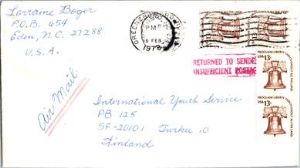 Lorraine Boger
P.O.B. 454
Eden, N.C. 27288
U.S.A.
GREENSBORO
PM
6 FEB
1978
RETURNED TO SENDER
INSUFFICIENT POSTAGE
Air Mail
International Youth Service
PB 125
SF-20101 Turku 10
Finland
USA 13c
USA 13c